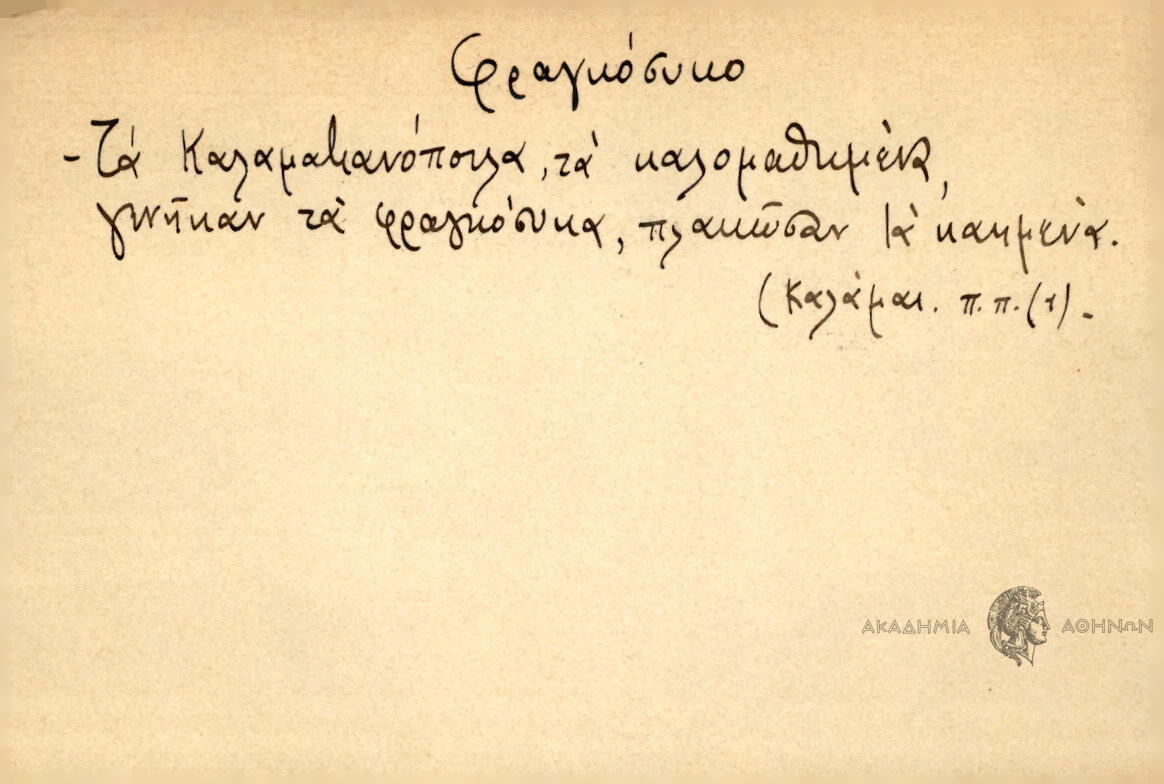 φραγκόσυκο
- Τά Καλαματιανόπουλα, τὰ καλομαθημένα,
γινῆκαν τὰ φραγκόσυκα, πλακῶσαν τὰ καημένα.
(Καλάμαι. π.π. (1). -
ΑΚΑΔΗΜΙΑ ΑΘΗΝΩΝ